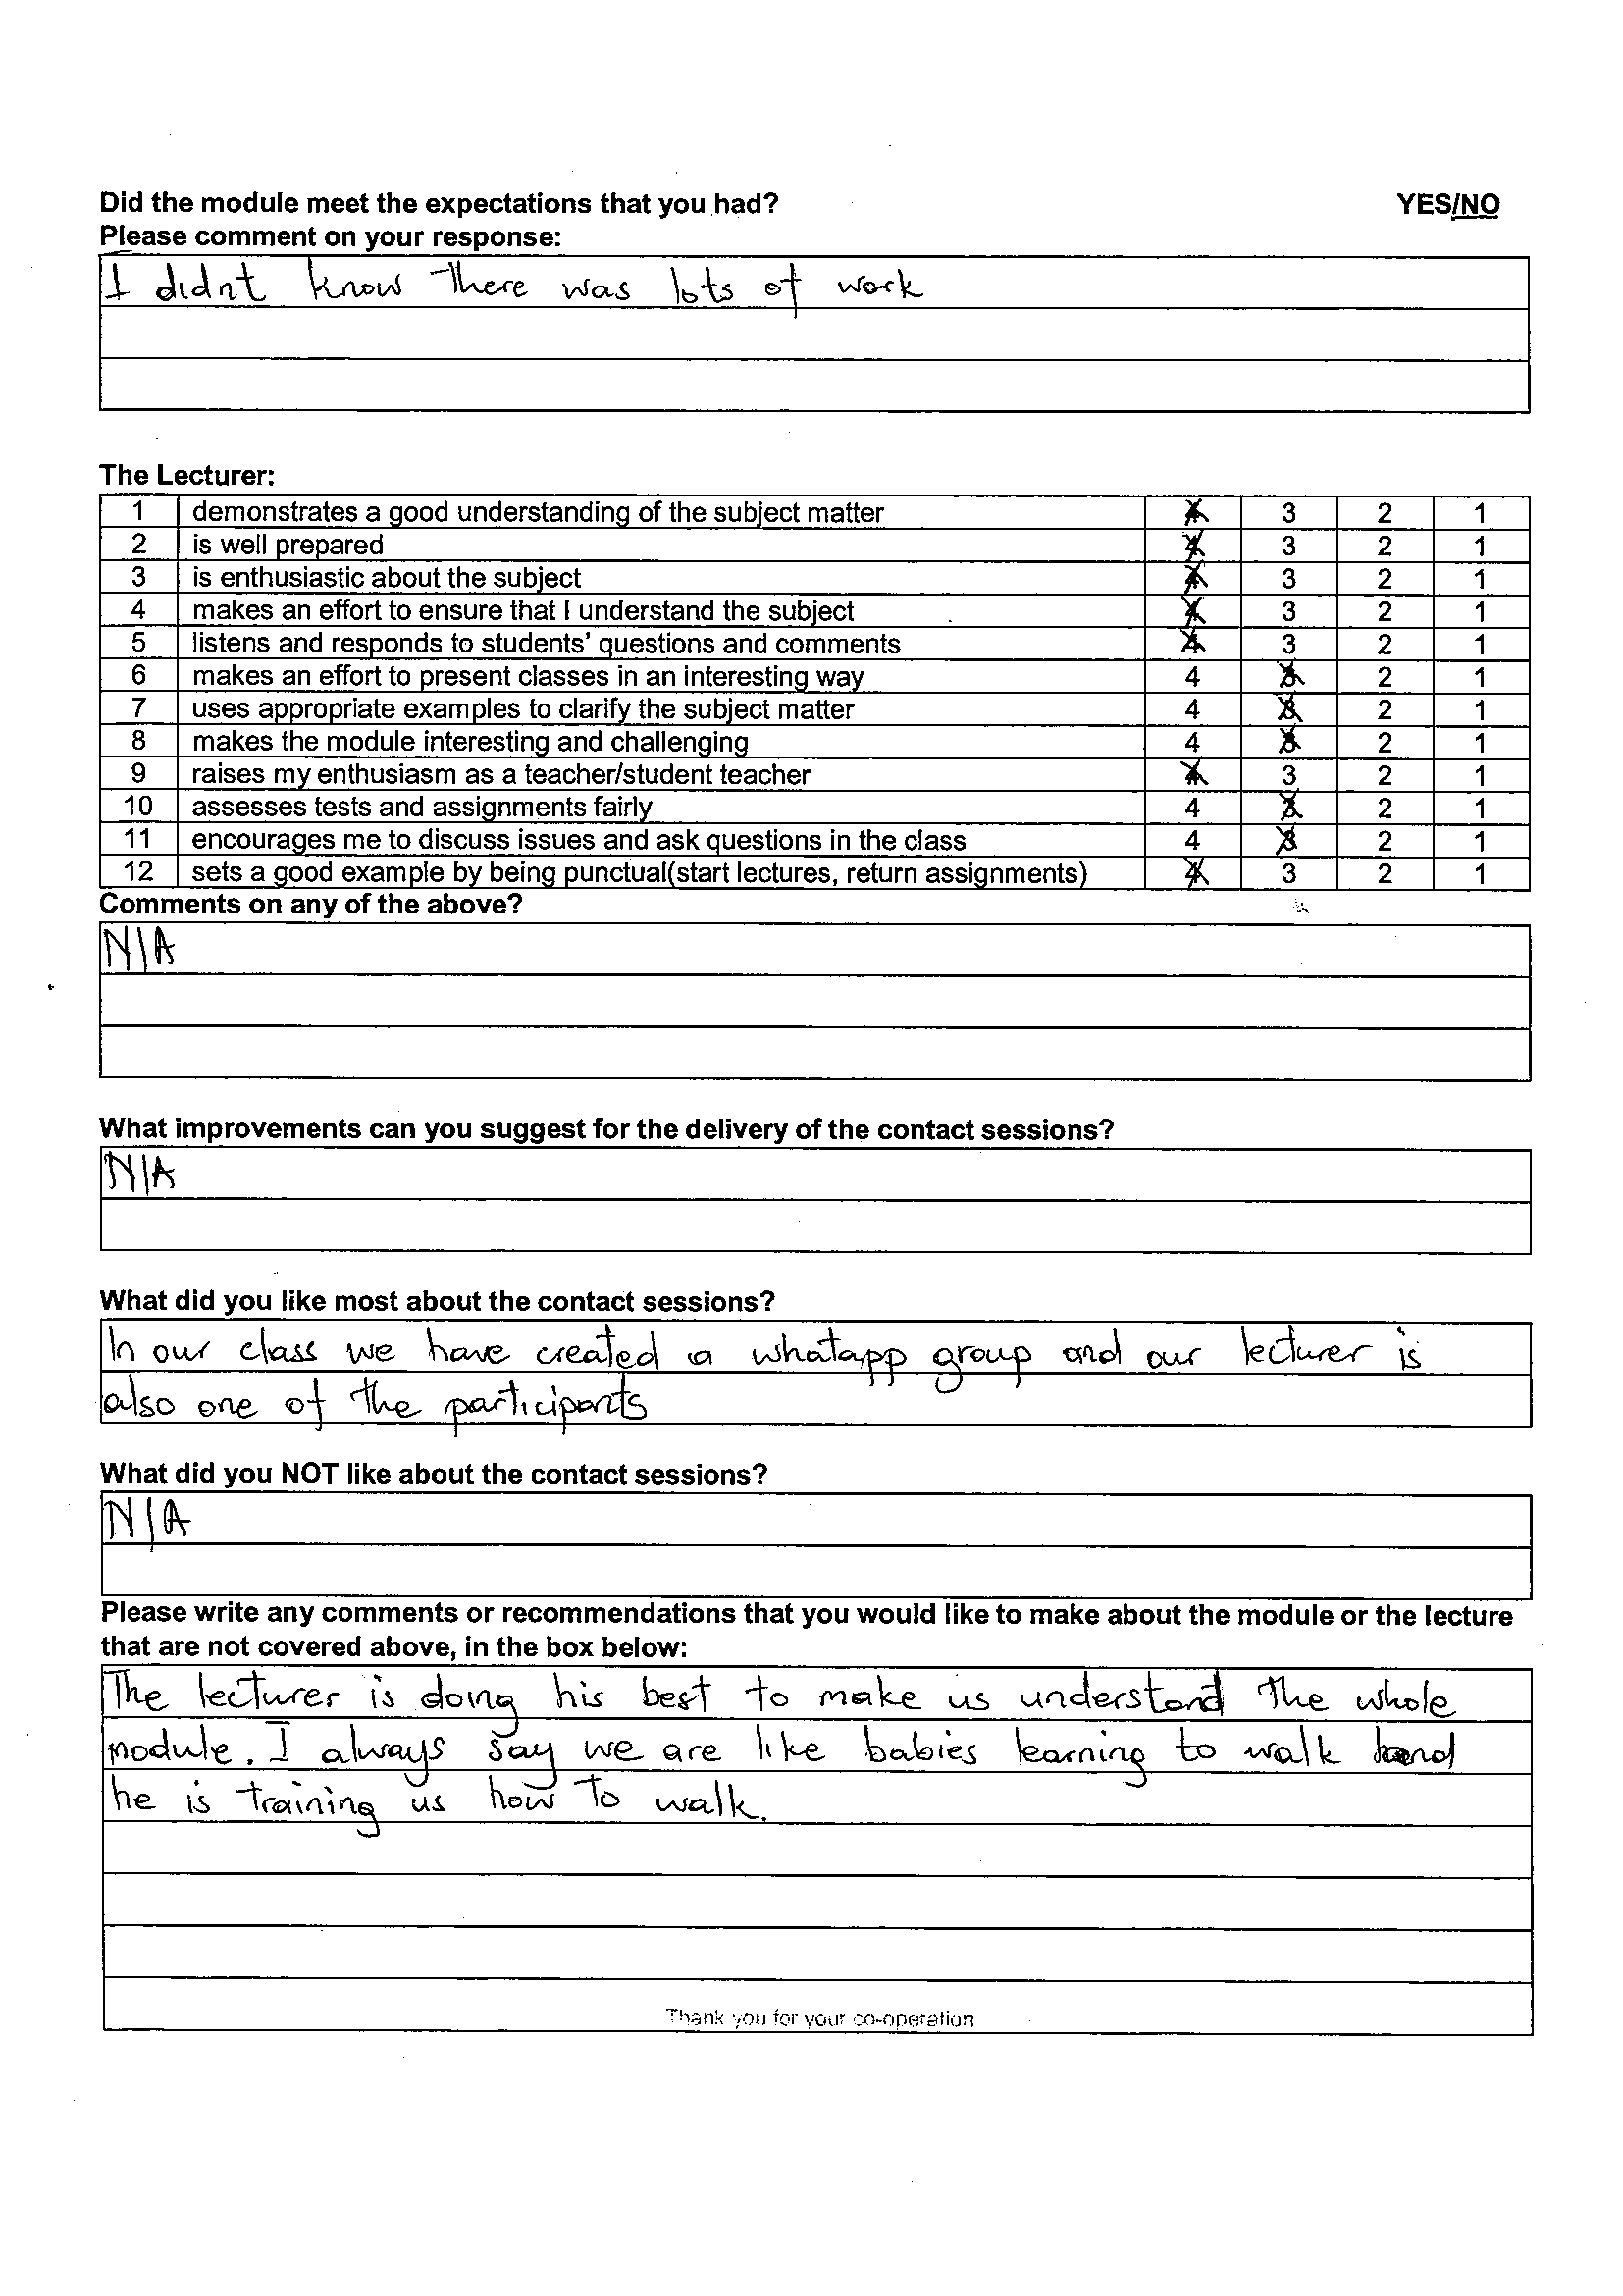 Did the module meet the expectations that you had? YES/NO
Please comment on your response:
I didnt know there was lots of work
The Lecturer:
1 demonstrates a good understanding of the subject matter 4 3 2 1
2 is well prepared 4 3 2 1
3 is enthusiastic about the subject 4 3 2 1
4 makes an effort to ensure that I understand the subject 4 3 2 1
5 listens and responds to students' questions and comments 4 3 2 1
6 makes an effort to present classes in an interesting way 4 3 2 1
7 uses appropriate examples to clarify the subject matter 4 3 2 1
8 makes the module interesting and challenging 4 3 2 1
9 raises my enthusiasm as a teacher/student teacher 4 3 2 1
10 assesses tests and assignments fairly 4 3 2 1
11 encourages me to discuss issues and ask questions in the class 4 3 2 1
12 sets a good example by being punctual(start lectures, return assignments) 4 3 2 1
Comments on any of the above?
N/A
What improvements can you suggest for the delivery of the contact sessions?
N/A
What did you like most about the contact sessions?
In our class we have created a whatapp group and our lecturer is
also one of the participants
What did you NOT like about the contact sessions?
N/A
Please write any comments or recommendations that you would like to make about the module or the lecture
that are not covered above, in the box below:
The lecturer is doing his best to make us understand the whole
module. I always say we are like babies learning to walk and
he is training us how to walk.
Thank you for your co-operation